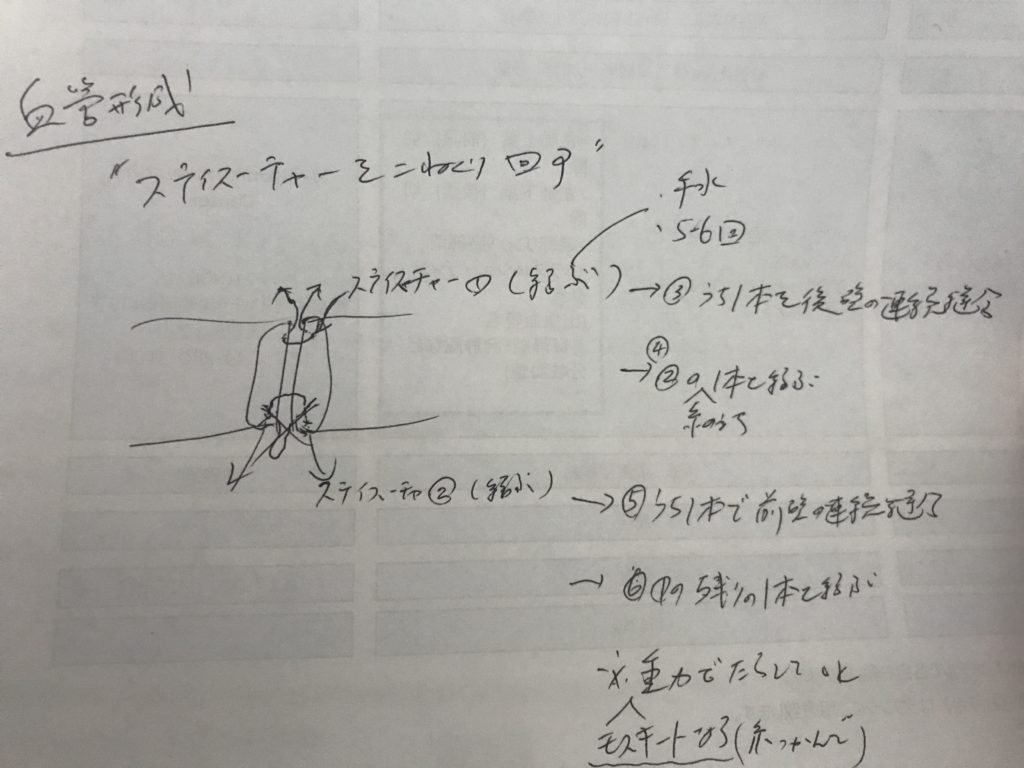 血管形成
"スティスーチャーをこねくり回す"
・手水
・5-6回
スティスーチャー① (結ぶ) → ③ うち1本を後壁の連続縫合
→ ④ ②の1本と結ぶ
糸のうち
スティスーチャ② (結ぶ)
→ ⑤ うち1本で前壁の連続縫合
→ ⑥ ①の残りの1本と結ぶ
※重力でたらして
モスキート (糸つかんで)